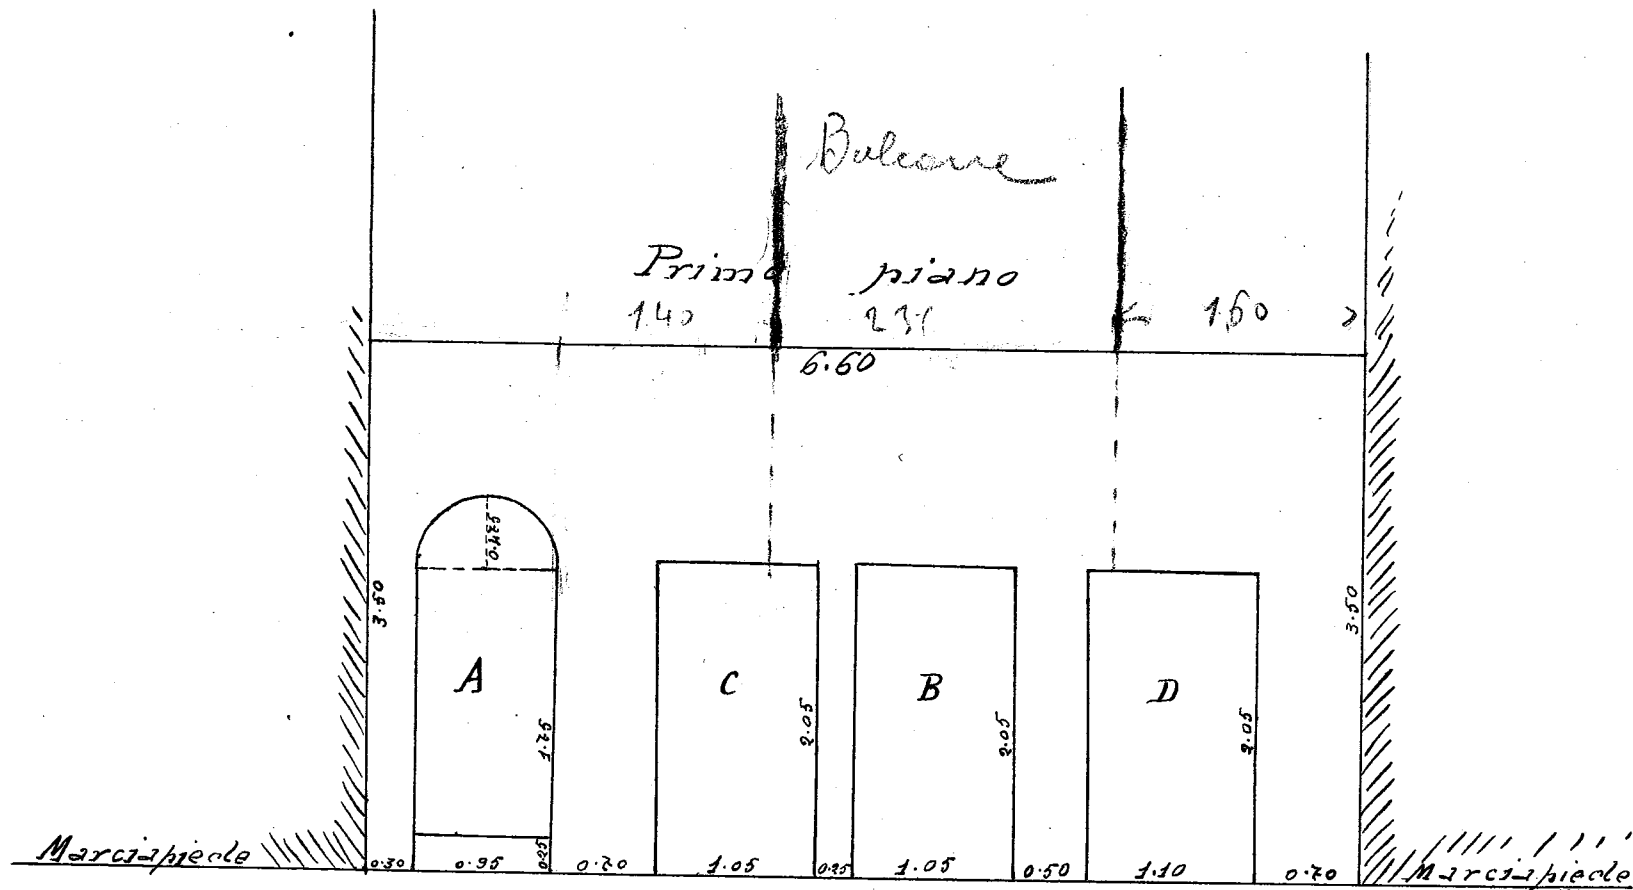 Balcone
Primo piano
1.40 1.60
6.60
0.475
3.50 3.50
A C B D
1.75 2.05 2.05 2.05
0.25
Marciapiede 0.30 0.95 0.70 1.05 0.25 1.05 0.50 1.10 0.70 Marciapiede